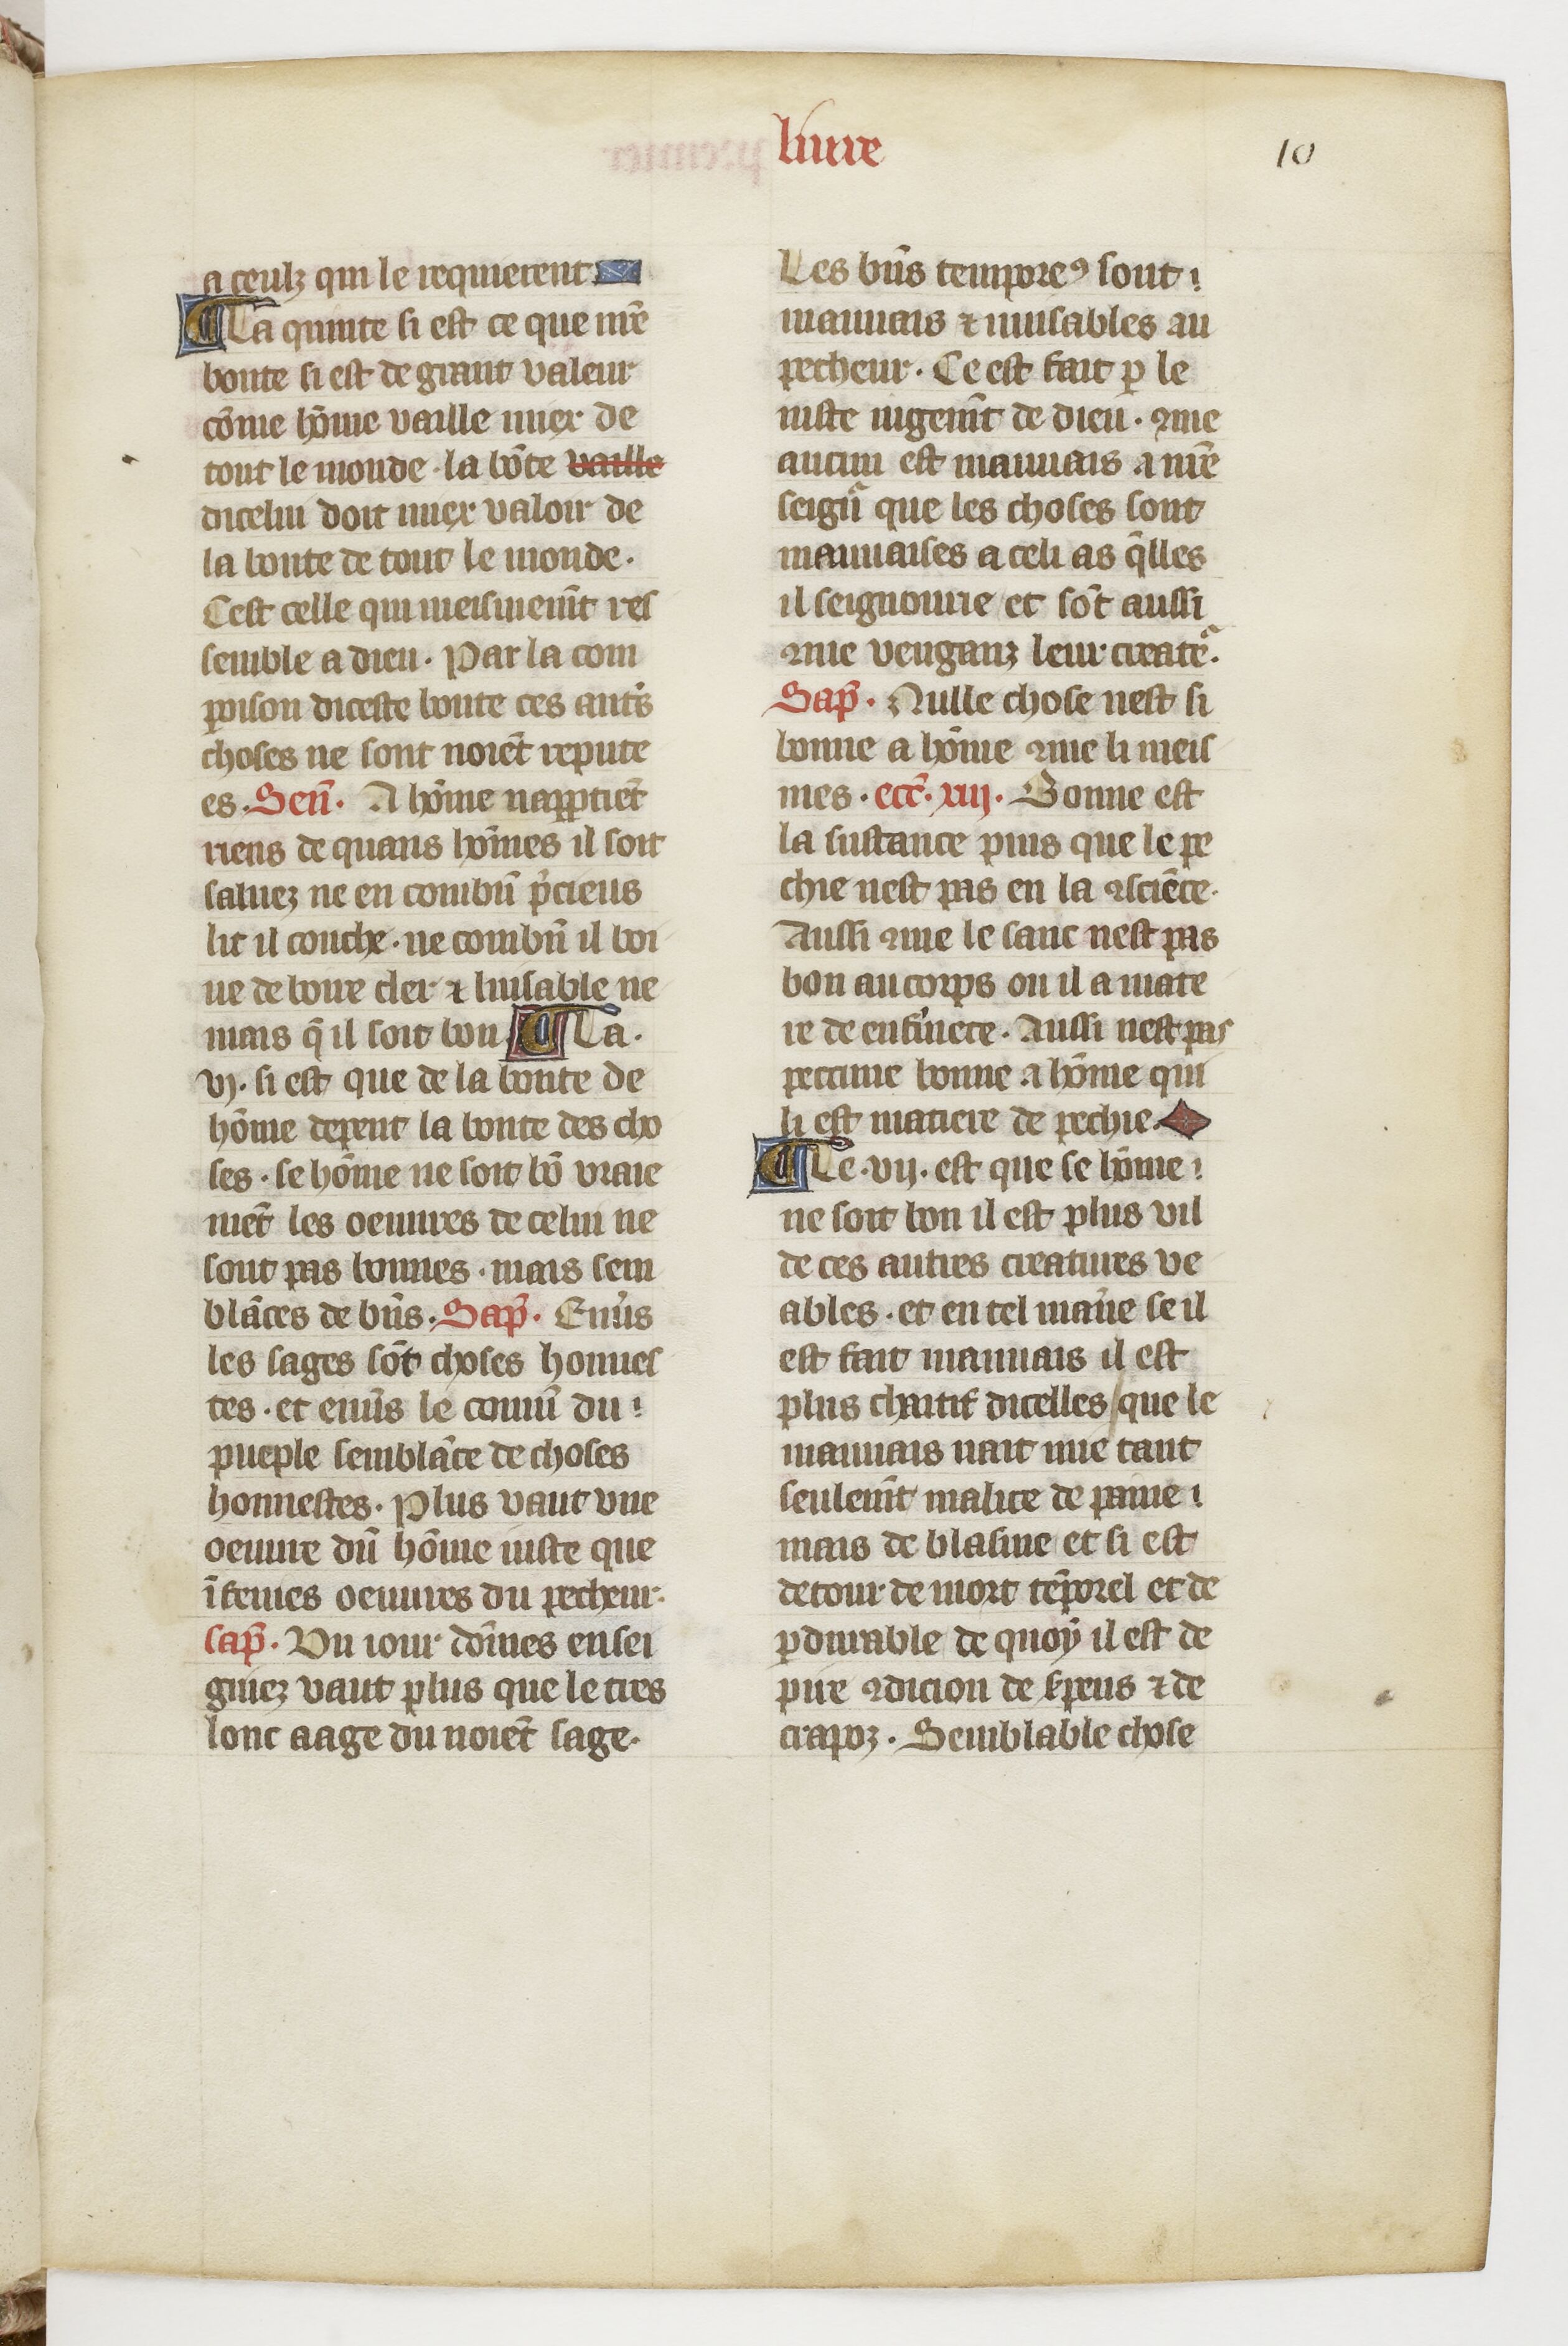 liure
10
a ceulz qui le requierent
La quinte si est ce que nr̃e
bonte si est de grant valeur
cõme hõme vaille miex de
tout le monde · la bõte vaille
dicelui doit miex valoir de
la bonte de tout le monde ·
Cest celle qui meismem̃t res
semble a dieu · Par la com
poison diceste bonte ces aut's
choses ne sont noiẽt repute
es · Señ · A hõme nap̲p̲tiẽt
riens de quans hõmes il soit
saluez ne en combñ p'cieus
lit il couche · ne combñ il boi
ue de boire cler ⁊ luisable ne
mais q̃ il soit bon La ·
vj · si est que de la bonte de
hõme depent la bonte des cho
ses · se hõme ne soit bõ vraie
mẽt les oeuures de celui ne
sont pas bonnes · mais sem
blãces de bñs · Sap̃ · Enũs
les sages sõt choses honnes
tes · et enũs le comũ du
pueple semblãce de choses
honnestes · Plus vaut vne
oeuure dũ hõme iuste que
ĩfenies oeuures du pecheur ·
sap̃ · Vn iour dõmes ensei
gniez vaut plus que le tres
lonc aage du noiẽt sage ·
Les bñs tempore⁹ sont
mauuais ⁊ nuisables au
pecheur · Ce est fait p̲ le
iuste iugem̃t de dieu · ꝯme
aucun est mauuais a nr̃e
seigñ que les choses sont
mauuaises a celi as q̃lles
il seignourie et sõt aussi
ꝯme venganz leur creatẽ ·
Sap̃ · Nulle chose nest si
bonne a hõme ꝯme li meis
mes · ecc̃ · xiij · Bonne est
la sustance puis que le pe
chie nest pas en la ꝯsciẽce ·
Aussi ꝯme le sanc nest pas
bon au corps ou il a mate
re de enf'mete · Aussi nest pas
peccune bonne a hõme qui
li est matiere de pechie
Le · vij · est que se hõme
ne soit bon il est plus vil
de ces autres creatures ve
ables · et en tel mañe se il
est fait mauuais il est
plus chaitif dicelles / que le
mauuais nait mie tant
seulem̃t malice de paine
mais de blasme et si est
detour de mort tẽporel et de
p̲durable de quoy il est de
pire ꝯdicion de s'pens ⁊ de
crapoz · Semblable chose